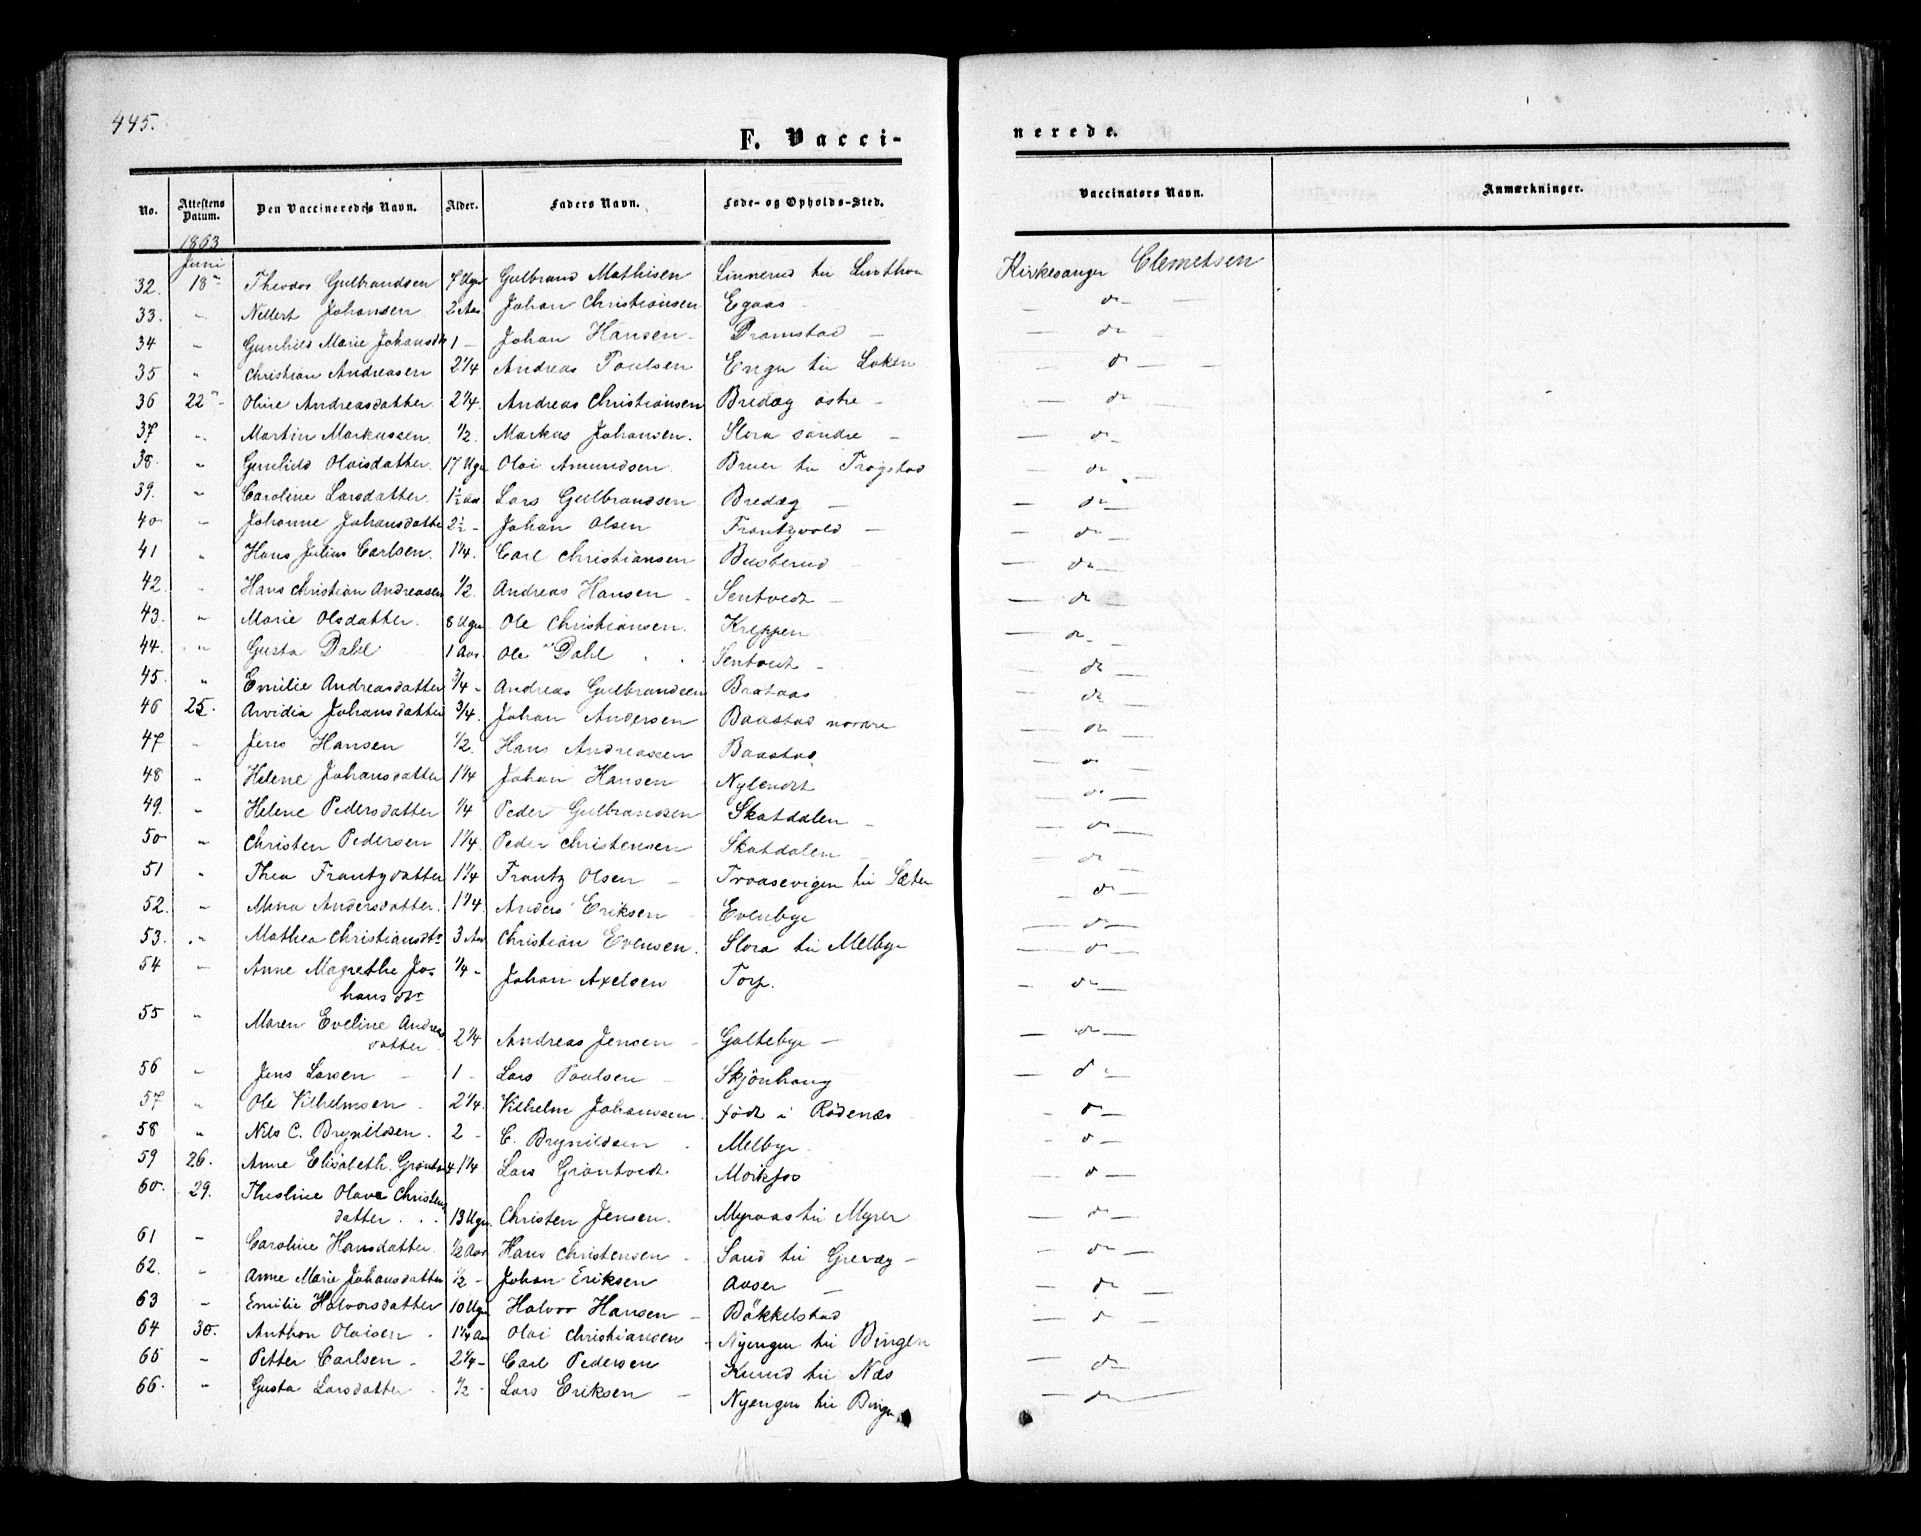 445.
F. Vacci-
nerede.
No. Attestens Datum. Den Vaccineredes Navn. Alder. Faders Navn. Føde- og Opholds-Sted. Vaccinators Navn. Anmærkninger.
1863
Juni
32. 18 Theodor Gulbrandsen 7 Ugr Gulbrand Mathisen Linnerud til Kirkesanger Clemetsen
33. " Johansen 2 Aar Johan Christiansen Egaas - do
34 " Gunhild Marie Johansdtr 1 - Johan Hansen Dramstad - do
35 " Christian Andreasen 2 1/4 Andreas Poulsen Engen til Løken - do
36 22 Oline Andreasdatter 2 1/4. Andreas Christiansen Bredæg østre - do
37 " Martin Markussen 1/2. Markus Johansen. Slora søndre - do
38. " Gunhild Olaisdatter. 17 Ugr Olai Amundsen til Trøgstad - do
39. " Caroline Larsdatter. 1 1/2 Aar Lars Gulbrandsen Bredæg - do
40 " Johanne Johansdatter 2 1/2 - Johan Olsen Frantzvold - do
41 " Hans Julius Carlsen. 1 1/4. Carl Christiansen Busterud - do
42. " Hans Christian Andreasen 1/2. Andreas Hansen Sentvedt - do
43. " Marie Olsdatter. 8 Ugr Ole Christiansen. Kreppen - do
44. " Gusta Dahl 1 Aar Ole Dahl Sentvedt - do
45. " Emilie Andreasdatter 3/4 - Andreas Gulbrandsen Brataas - do
46 25. Arvidia Johansdatter 3/4. Johan Andersen Baastad nordre - do
47 " Jens Hansen 1/2. Hans Andreassen Baastad - do
48 " Helene Johansdatter 1 1/4 Johan Hansen - do
49. " Helene Pedersdatter 1/4 Peder Gulbrandsen Skatdalen - do
50 " Christen Pedersen 1 1/4. Peder Christensen Skatdalen - do
51 " Thea Frantzdatter 1 1/4 Frantz Olsen - Traasevigen til Sæter - do
52. " Maria Andersdatter. 1 1/4. Anders Eriksen - Evenbye - do
53. " Mathea Christiansdtr 3 Aar Christian Evensen. Slora til Melbye - do
54 " Anne Magrethe Jo-
hansdtr 1/4 - Johan Axelsen Torp. - do
55 " Maren Eveline Andreas
datter 2 1/4 Andreas Jensen - Galtebye - do
56 " Jens Larsen 1 - Lars Poulsen - Skjønhaug - do
57 " Ole Vilhelmsen 2 1/4. Vilhelm Johanssen. født i Rødenæs - do
58 " Nils C. Brynildsen. 2 - C. Brynildsen Melbye - do
59 26. Anne Elisabeth Grøntv 4 1/4 Lars Grøntvedt Morkfos - do
60. 29. Thesline Olava Christens
datter . . . 13 Ugr. Christen Jensen. Myraas til Myrer - do
61 " Caroline Hansdatter. 1/2 Aar Hans Christensen - Sand til Grevæg - do
62. " Anne Marie Johansdatter 1/2 - Johan Eriksen Aaser - do
63 " Emilie Halvorsdatter 10 Ugr Halvor Hansen - Bøkkelstad - do
64 30. Anthon Olaisen 1 1/4 Aar Olai Christiansen - Nyengen til Bingen
65 " Petter Carlsen - 2 1/4 - Carl Pedersen til Næs - do
66. " Gusta Larsdatter 1/2 - Lars Eriksen - Nyengen til Bingen - do